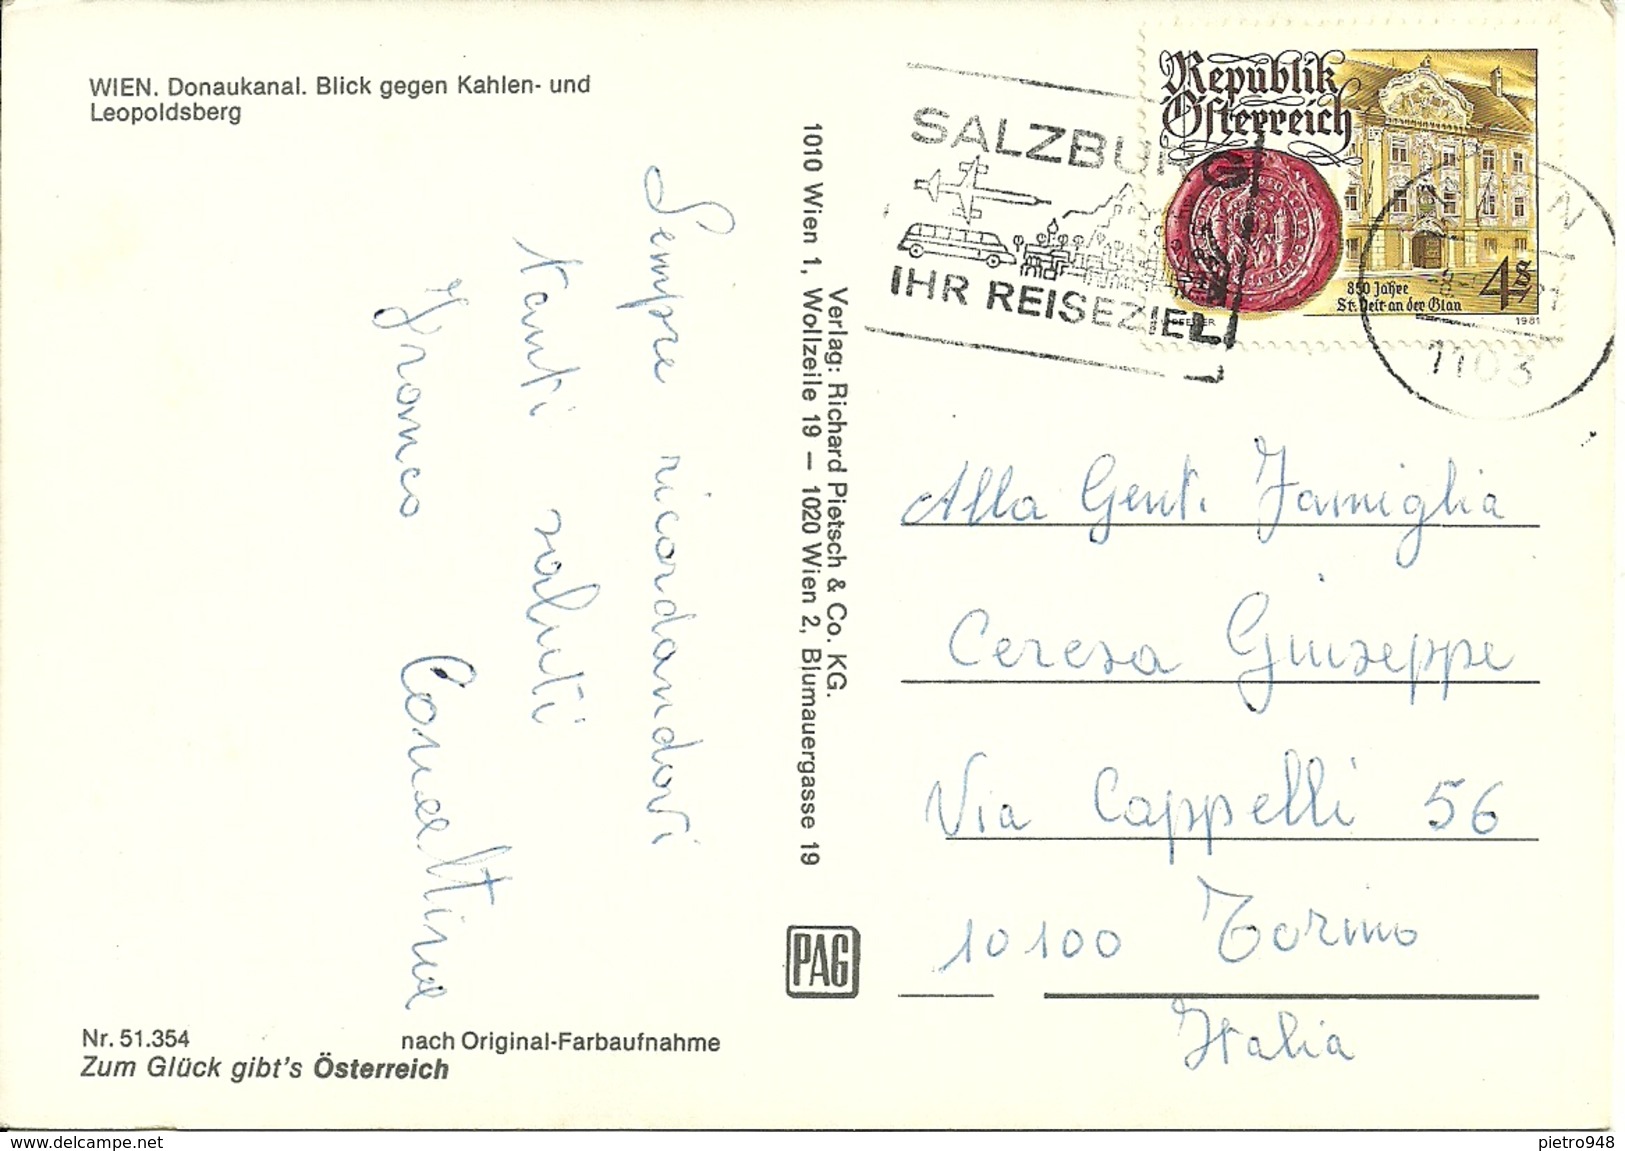 WIEN. Donaukanal. Blick gegen Kahlen- und
Leopoldsberg
Sempre ricordandovi
tanti saluti
Franco
Nr. 51.354
nach Original-Farbaufnahme
Zum Glück gibt's Österreich
Verlag: Richard Pietsch & Co. KG.
1010 Wien 1, Wollzeile 19 — 1020 Wien 2, Blumauergasse 19
PAG
SALZBURG
IHR REISEZIEL
Republik
Österreich
850 Jahre
St. Veit an der Glan
4 S
1981
WIEN
1103
Alla Gent. Famiglia
Ceresa Giuseppe
Via Cappelli 56
10100 Torino
Italia
www.delcampe.net
pietro948